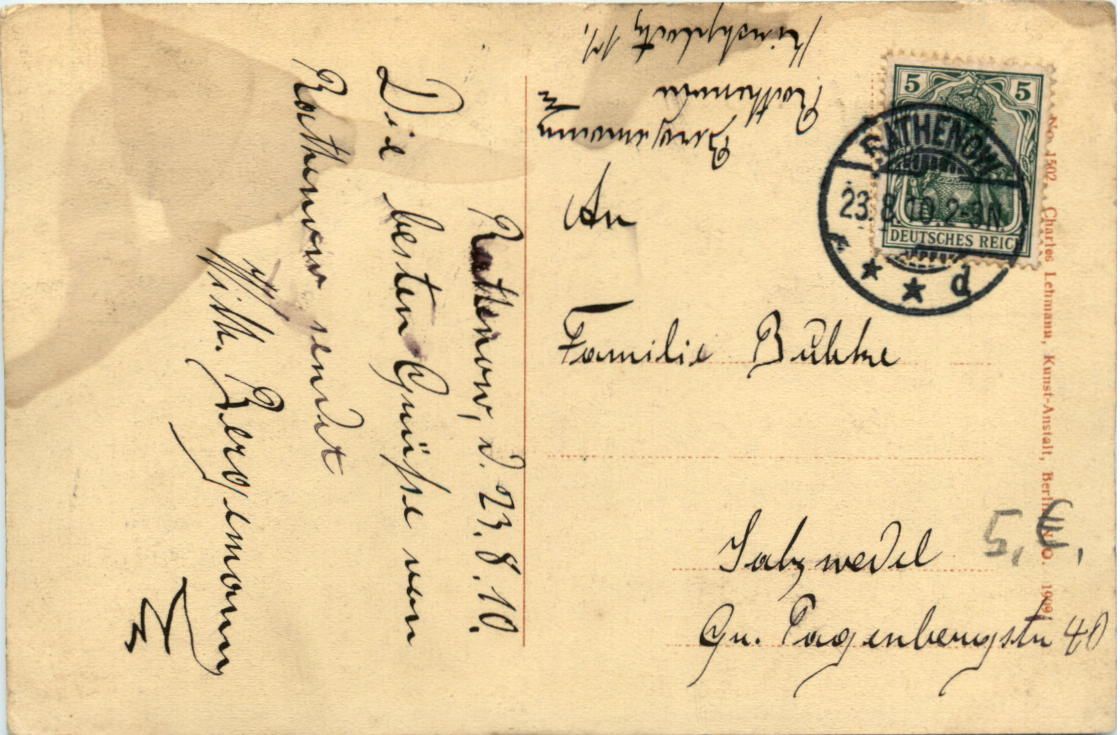 Rathenow, d. 23.8.10.
Die besten Grüße von
Rathenow sendet
Wilh. Bergemann
Bergemann
Rathenow
An
Familie Buhtze
Salzwedel
Gr. Pagenbergstr 40
5
5
DEUTSCHES REICH
RATHENOW
23.8.10.2-3N.
* * d
No. 1502 Charles Lehmann, Kunst-Anstalt, Berlin NO. 1909
5,€,